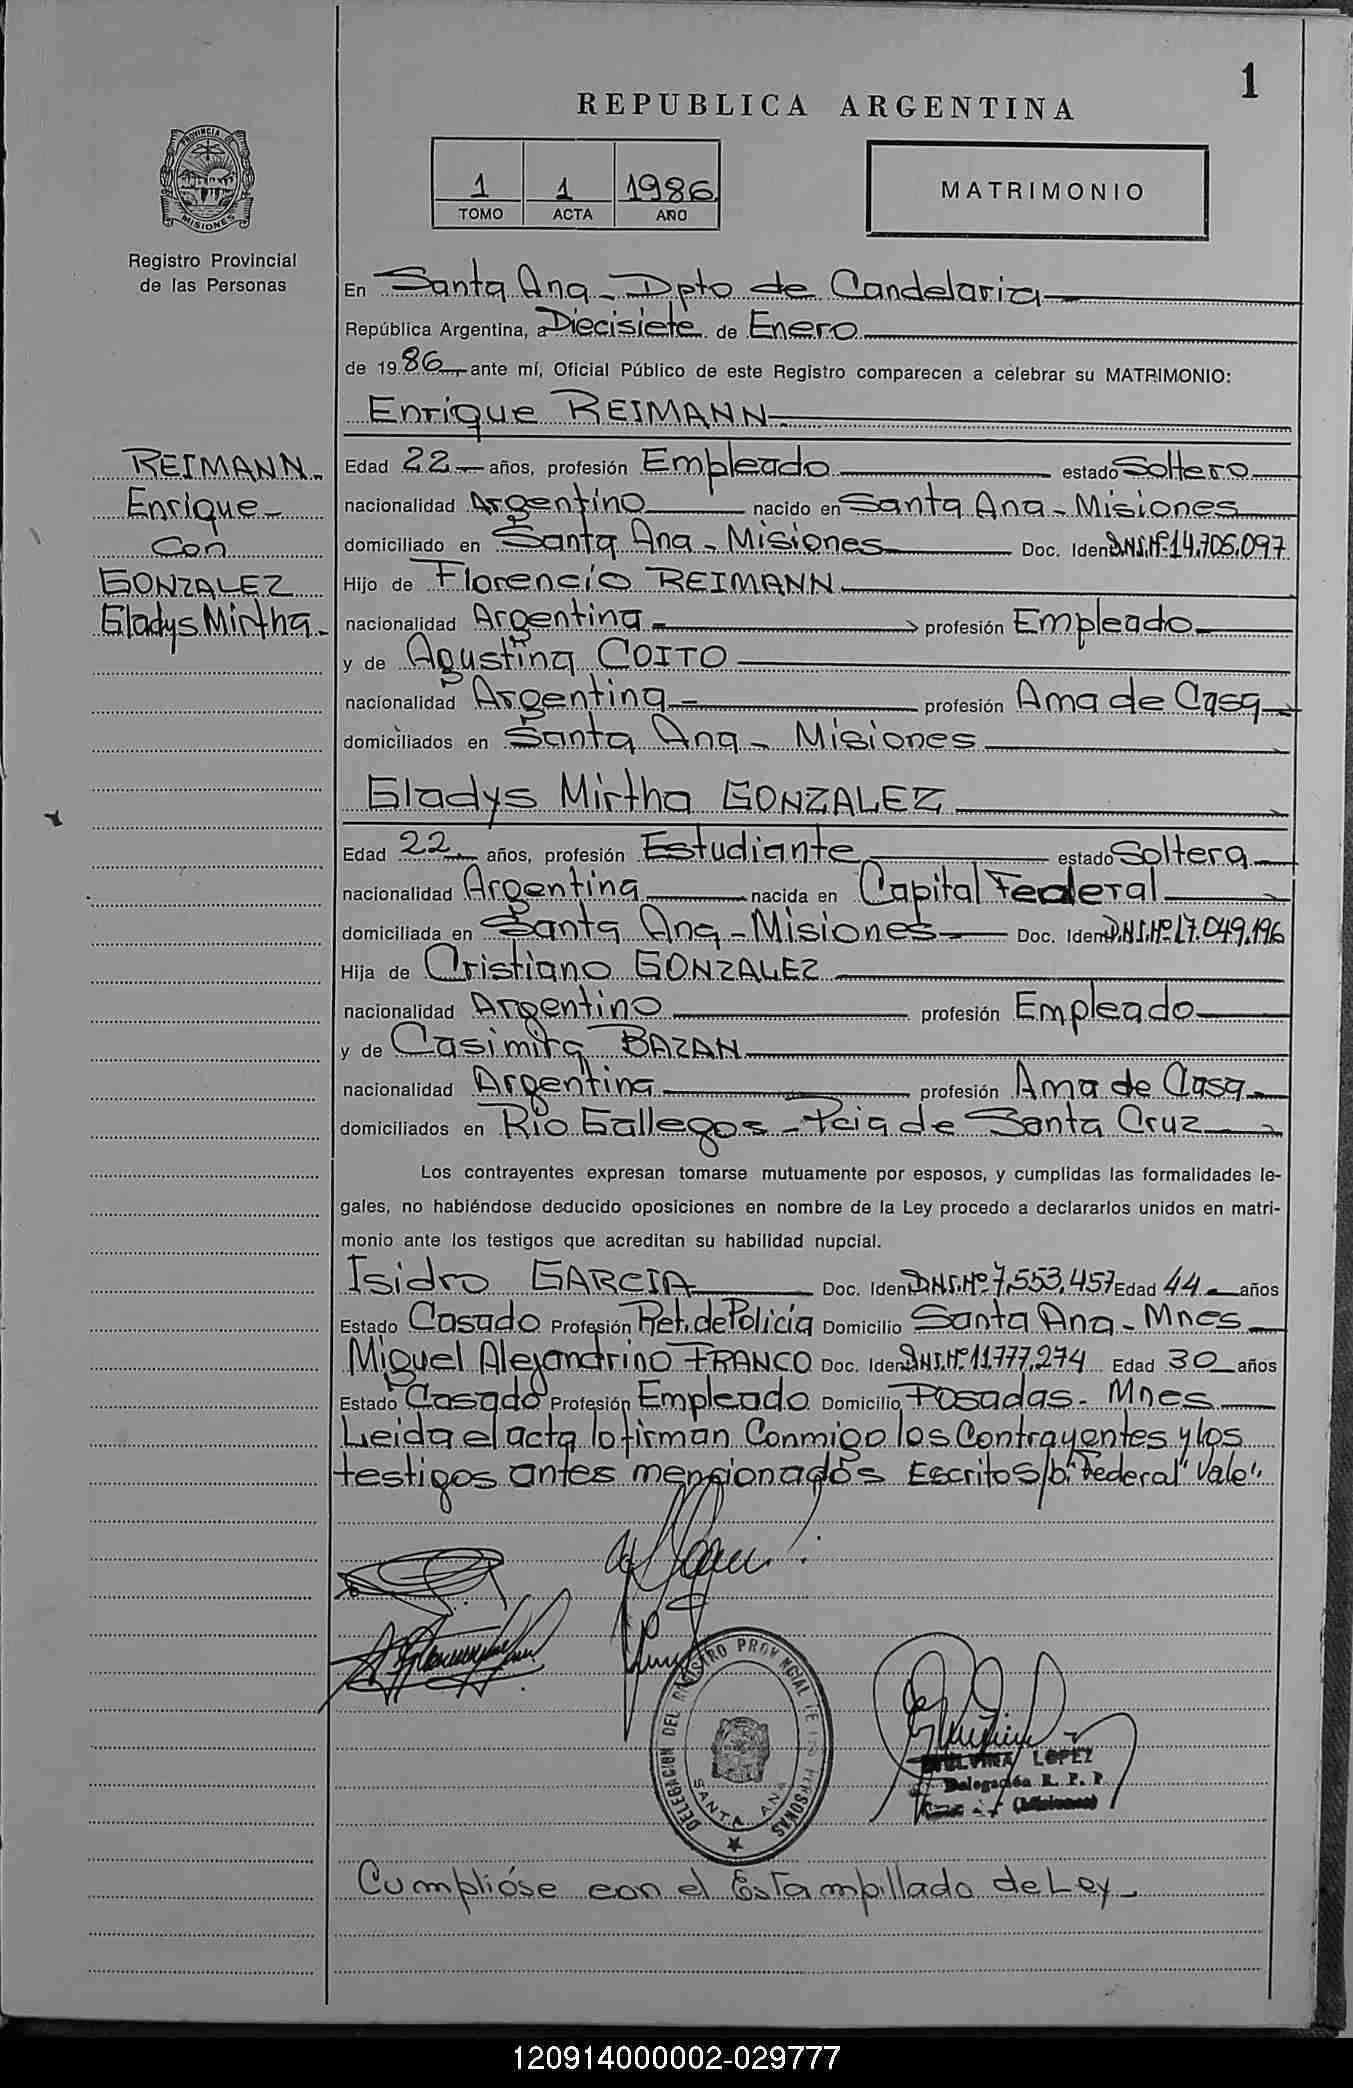 1
REPUBLICA ARGENTINA
PROVINCIA DE
MISIONES
1 1 1986
TOMO ACTA AÑO
MATRIMONIO
Registro Provincial
de las Personas
En Santa Ana - Dpto de Candelaria
República Argentina, a Diecisiete de Enero
de 1986 ante mí, Oficial Público de este Registro comparecen a celebrar su MATRIMONIO:
Enrique REIMANN
REIMANN
Enrique
Con
GONZALEZ
Gladys Mirtha
Edad 22 años, profesión Empleado estado Soltero
nacionalidad Argentino nacido en Santa Ana - Misiones
domiciliado en Santa Ana - Misiones Doc. Iden D.N.I.Nº 14.705.097
Hijo de Florencio REIMANN
nacionalidad Argentina profesión Empleado
y de Agustina COITO
nacionalidad Argentina profesión Ama de Casa
domiciliados en Santa Ana - Misiones
Gladys Mirtha GONZALEZ
Edad 22 años, profesión Estudiante estado Soltera
nacionalidad Argentina nacida en Capital Federal
domiciliada en Santa Ana - Misiones Doc. Iden D.N.I.Nº 17.049.196
Hija de Cristiano GONZALEZ
nacionalidad Argentino profesión Empleado
y de Casimira BAZAN
nacionalidad Argentina profesión Ama de Casa
domiciliados en Rio Gallegos - Pcia de Santa Cruz
Los contrayentes expresan tomarse mutuamente por esposos, y cumplidas las formalidades le-
gales, no habiéndose deducido oposiciones en nombre de la Ley procedo a declararlos unidos en matri-
monio ante los testigos que acreditan su habilidad nupcial.
Isidro GARCIA Doc. Iden D.N.I.Nº 7.553.457 Edad 44 años
Estado Casado Profesión Ret. de Policía Domicilio Santa Ana - Mnes
Miguel Alejandrino FRANCO Doc. Iden D.N.I.Nº 11.777.274 Edad 30 años
Estado Casado Profesión Empleado Domicilio Posadas - Mnes
Leida el acta lo firman Conmigo los Contrayentes y los
testigos antes mencionados Escrito s/b "Federal" Vale".
DELEGACION DEL REGISTRO PROVINCIAL DE LAS PERSONAS
SANTA ANA
LOPEZ
Delegación R. P. P.
(Misiones)
Cumplióse con el Estampillado de Ley
120914000002-029777